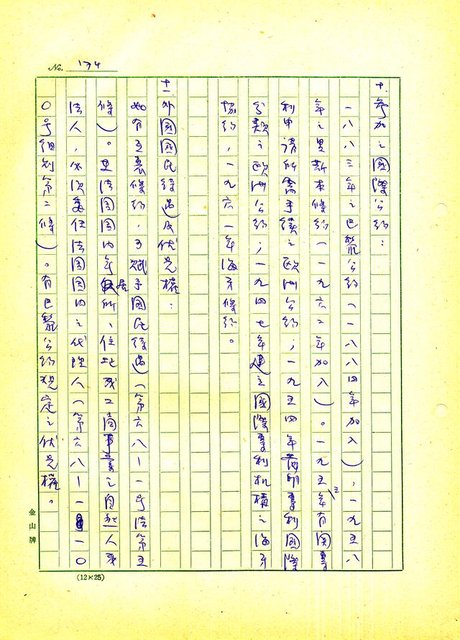 No. 174
十、參加之國際公約：
一八八三年之巴黎公約（一八八四年加入），一九五八
年之里斯本條約（一九六二年加入）。一九五三年有關專
利申請所需手續之歐洲公約，一九五四年發明專利國際
分類之歐洲公約，一九四七年建立國際專利机構之海牙
協約，一九六一年海牙條約。
十一、外國國民待遇及优先權：
如有互惠條約，予賦予國民待遇（第六八—一号法第五
條）。在法國國內無居所、住址或工商事業之自然人或
法人，必須委任法國國內之代理人（第六八—一一〇
〇号細則第二條）。有巴黎公約規定之优先權。
金山牌
(12×25)